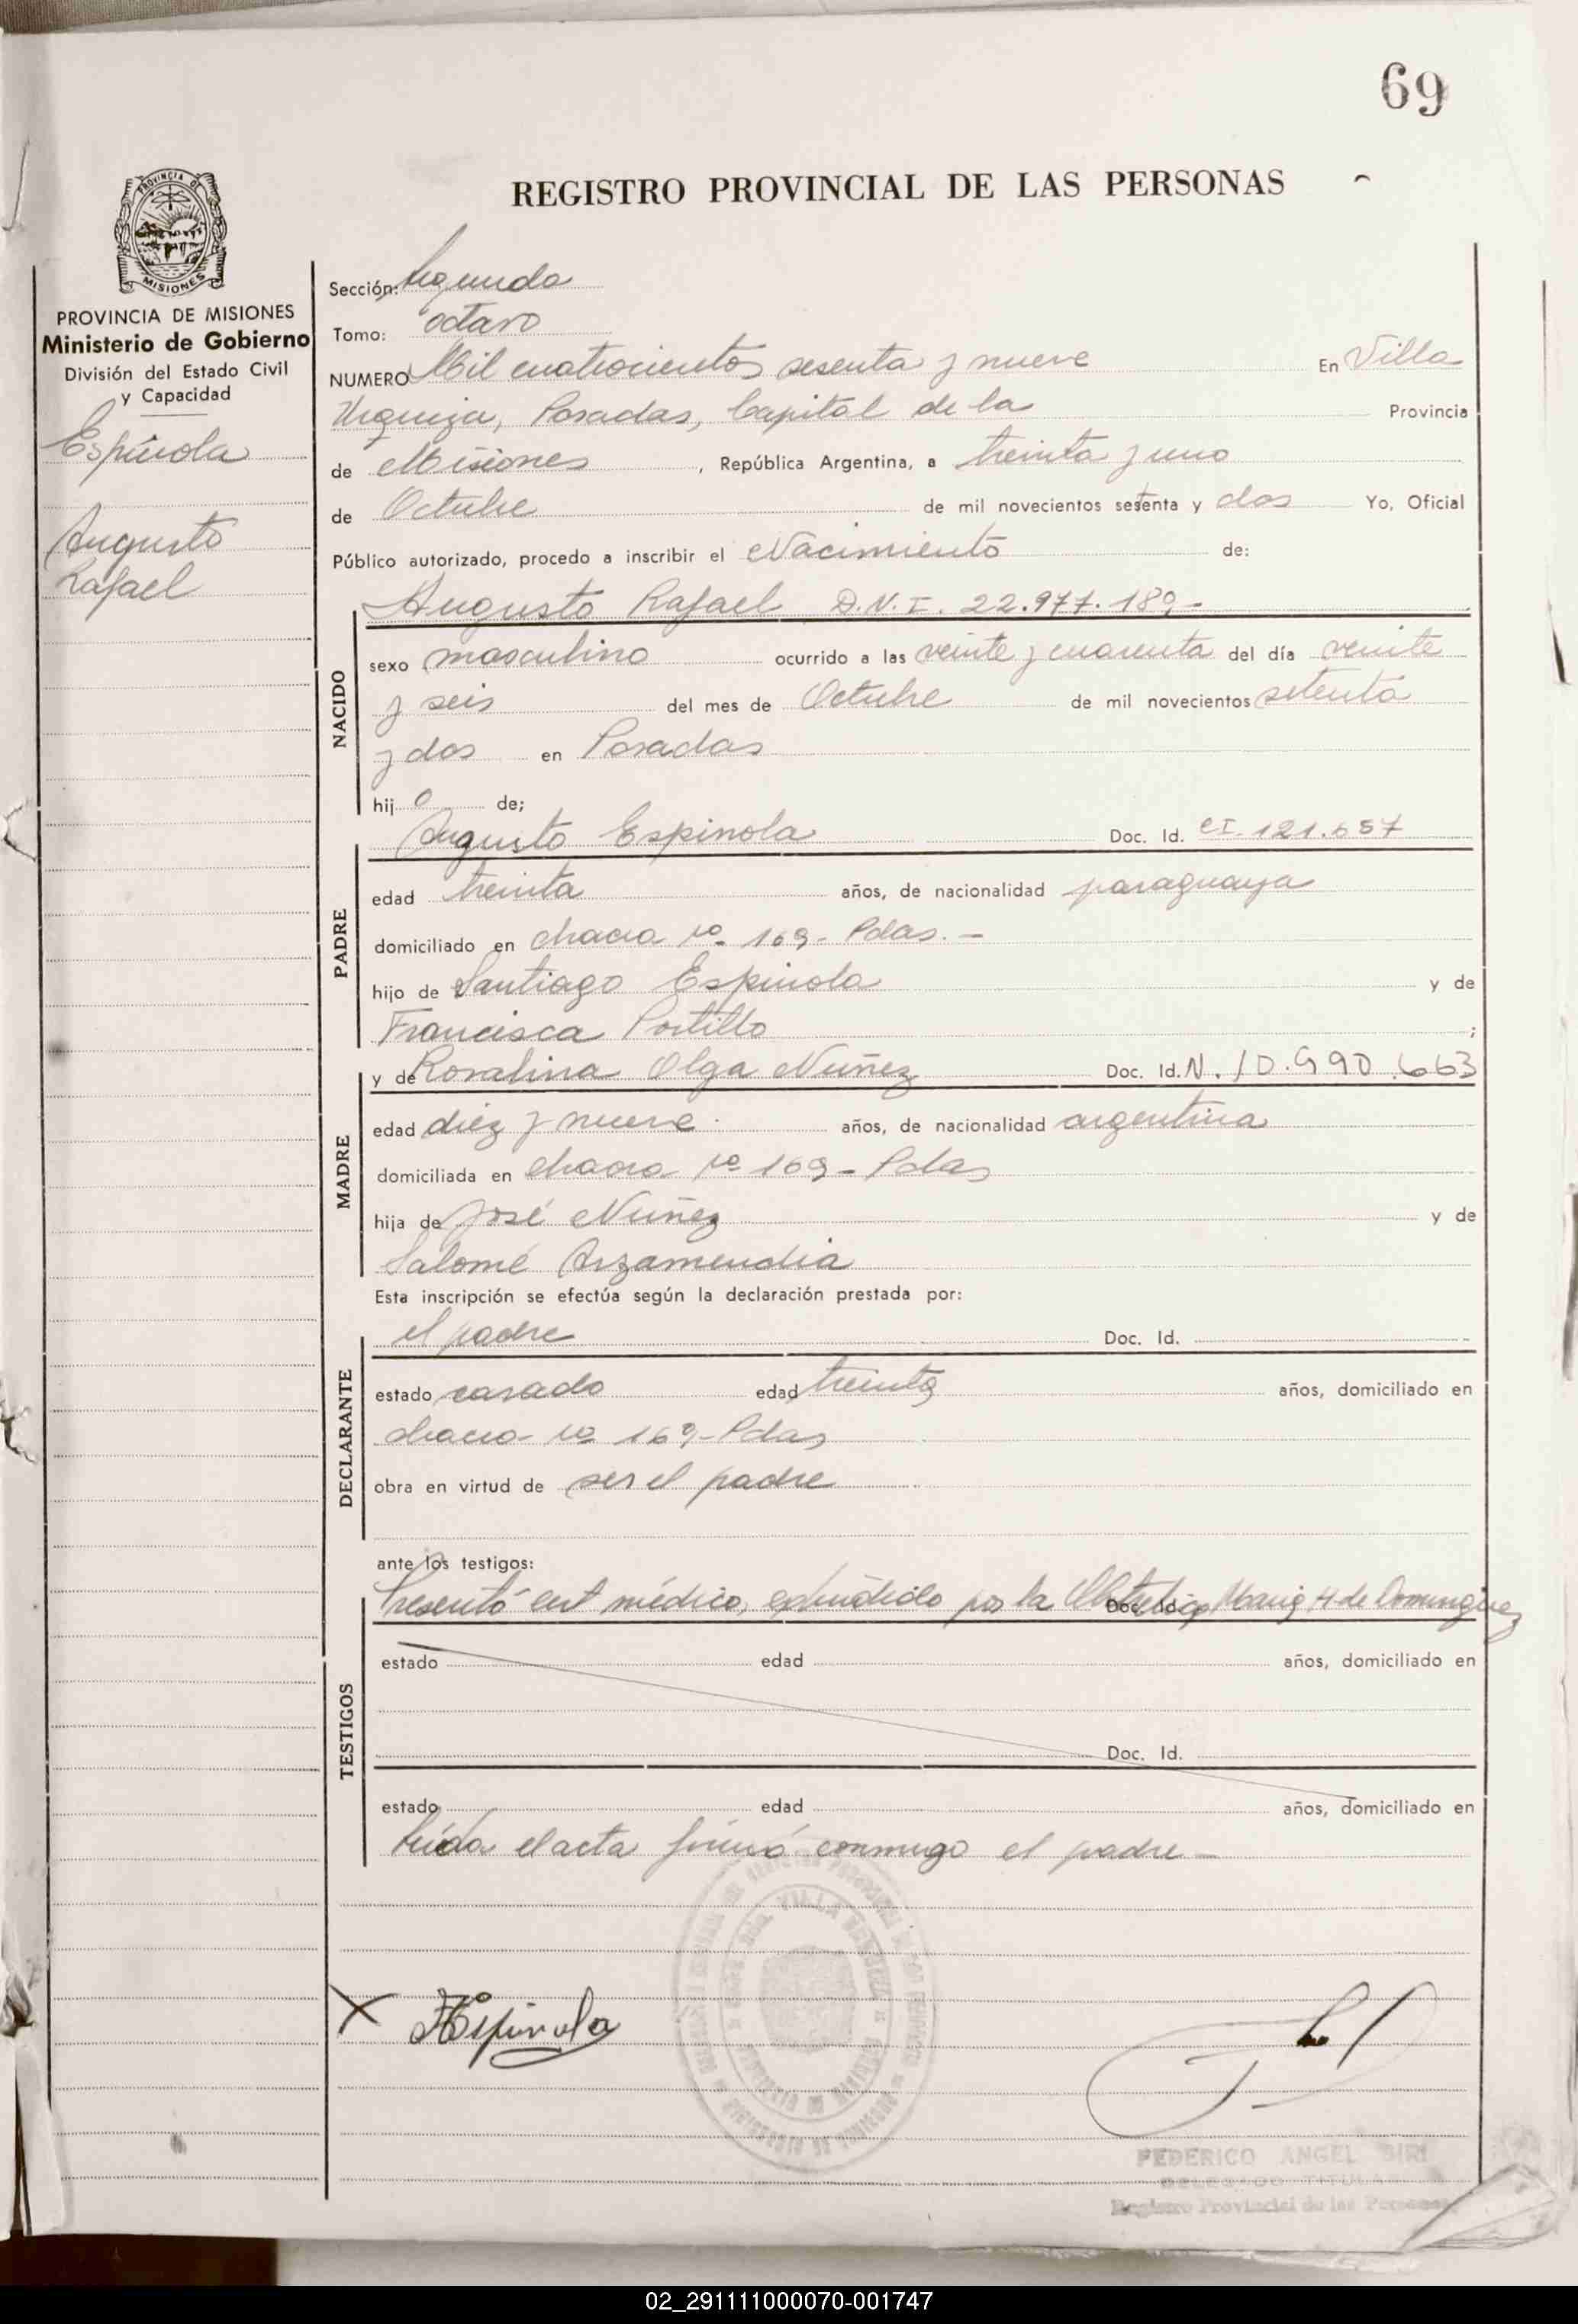 69
REGISTRO PROVINCIAL DE LAS PERSONAS
PROVINCIA DE
MISIONES
PROVINCIA DE MISIONES
Ministerio de Gobierno
División del Estado Civil
y Capacidad
Espínola
Augusto
Rafael
Sección: Segunda
Tomo: octavo
NUMERO Mil cuatrocientos sesenta y nueve En Villa
Urquiza, Posadas, Capital de la Provincia
de Misiones, República Argentina, a treinta y uno
de Octubre de mil novecientos setenta y dos Yo, Oficial
Público autorizado, procedo a inscribir el Nacimiento de:
Augusto Rafael D.N.I. 22.977.189-
NACIDO
sexo masculino ocurrido a las veinte y cuarenta del día veinte
y seis del mes de Octubre de mil novecientos setenta
y dos en Posadas
hijo de;
Augusto Espinola Doc. Id. CI. 121.657
PADRE
edad treinta años, de nacionalidad paraguaya
domiciliado en chacra nº 169- Pdas.-
hijo de Santiago Espinola y de
Francisca Portillo;
y de Rosalina Olga Nuñez Doc. Id. N. 10.990.663
MADRE
edad diez y nueve años, de nacionalidad argentina
domiciliada en chacra nº 169- Pdas
hija de José Nuñez y de
Salomé Arzamendia
Esta inscripción se efectúa según la declaración prestada por:
el padre Doc. Id.
DECLARANTE
estado casado edad treinta años, domiciliado en
chacra nº 169- Pdas
obra en virtud de ser el padre
ante los testigos:
Presentó cert médico, expendido por la Obstetrica Maria H de Dominguez
Doc. Id.
TESTIGOS
estado edad años, domiciliado en
Doc. Id.
estado edad años, domiciliado en
leída el acta firmó conmigo el padre-
X AEspinola
VILLA URQUIZA
FEDERICO ANGEL BIRI
DELEGADO TITULAR
Registro Provincial de las Personas
02_291111000070-001747